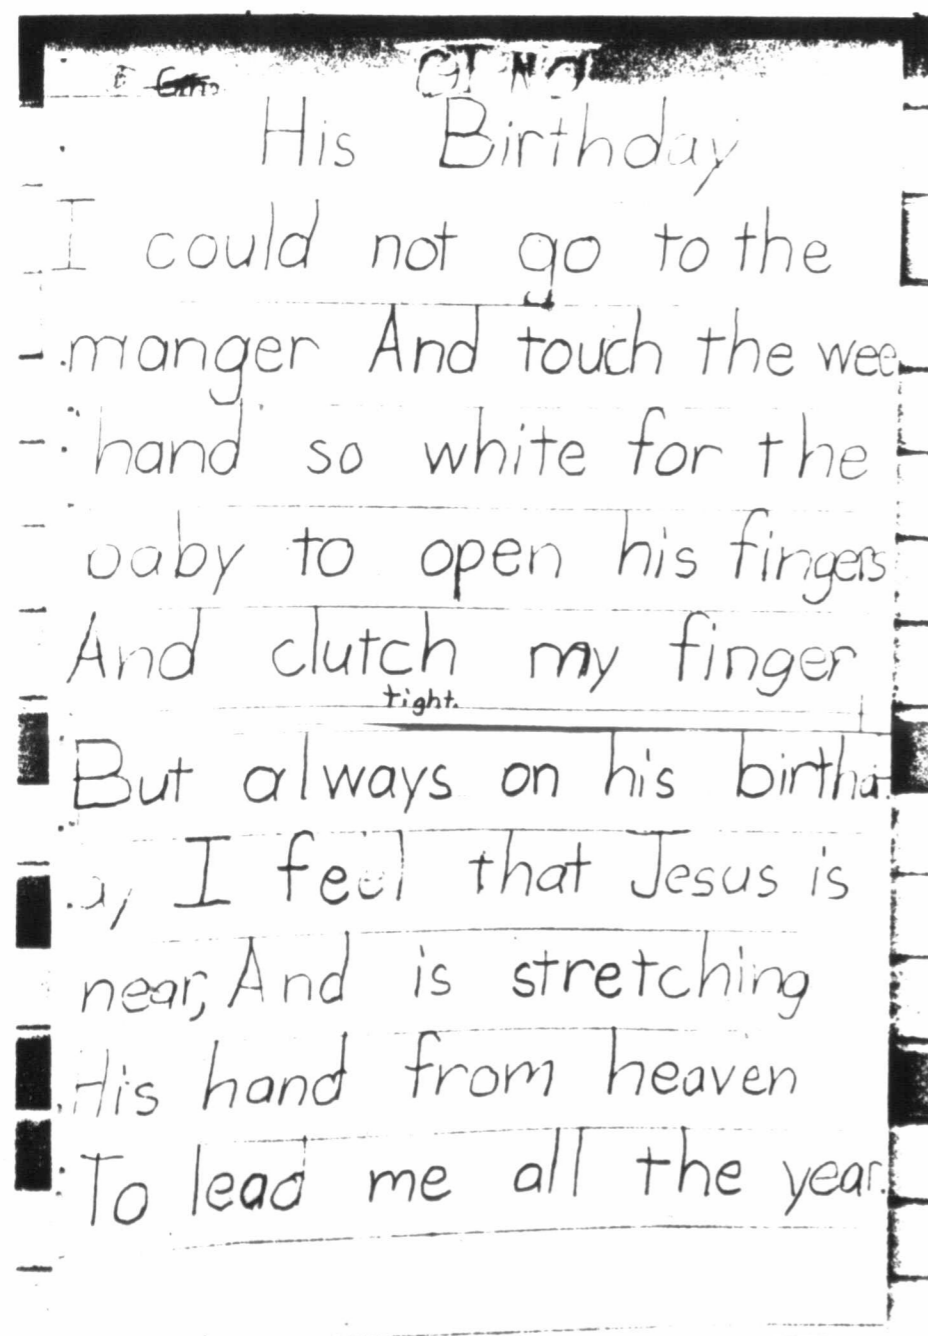 His Birthday
I could not go to the
manger And touch the wee
hand so white for the
baby to open his fingers
And clutch my finger
tight.
But always on his birthd
ay I feel that Jesus is
near, And is stretching
His hand from heaven
To lead me all the year.